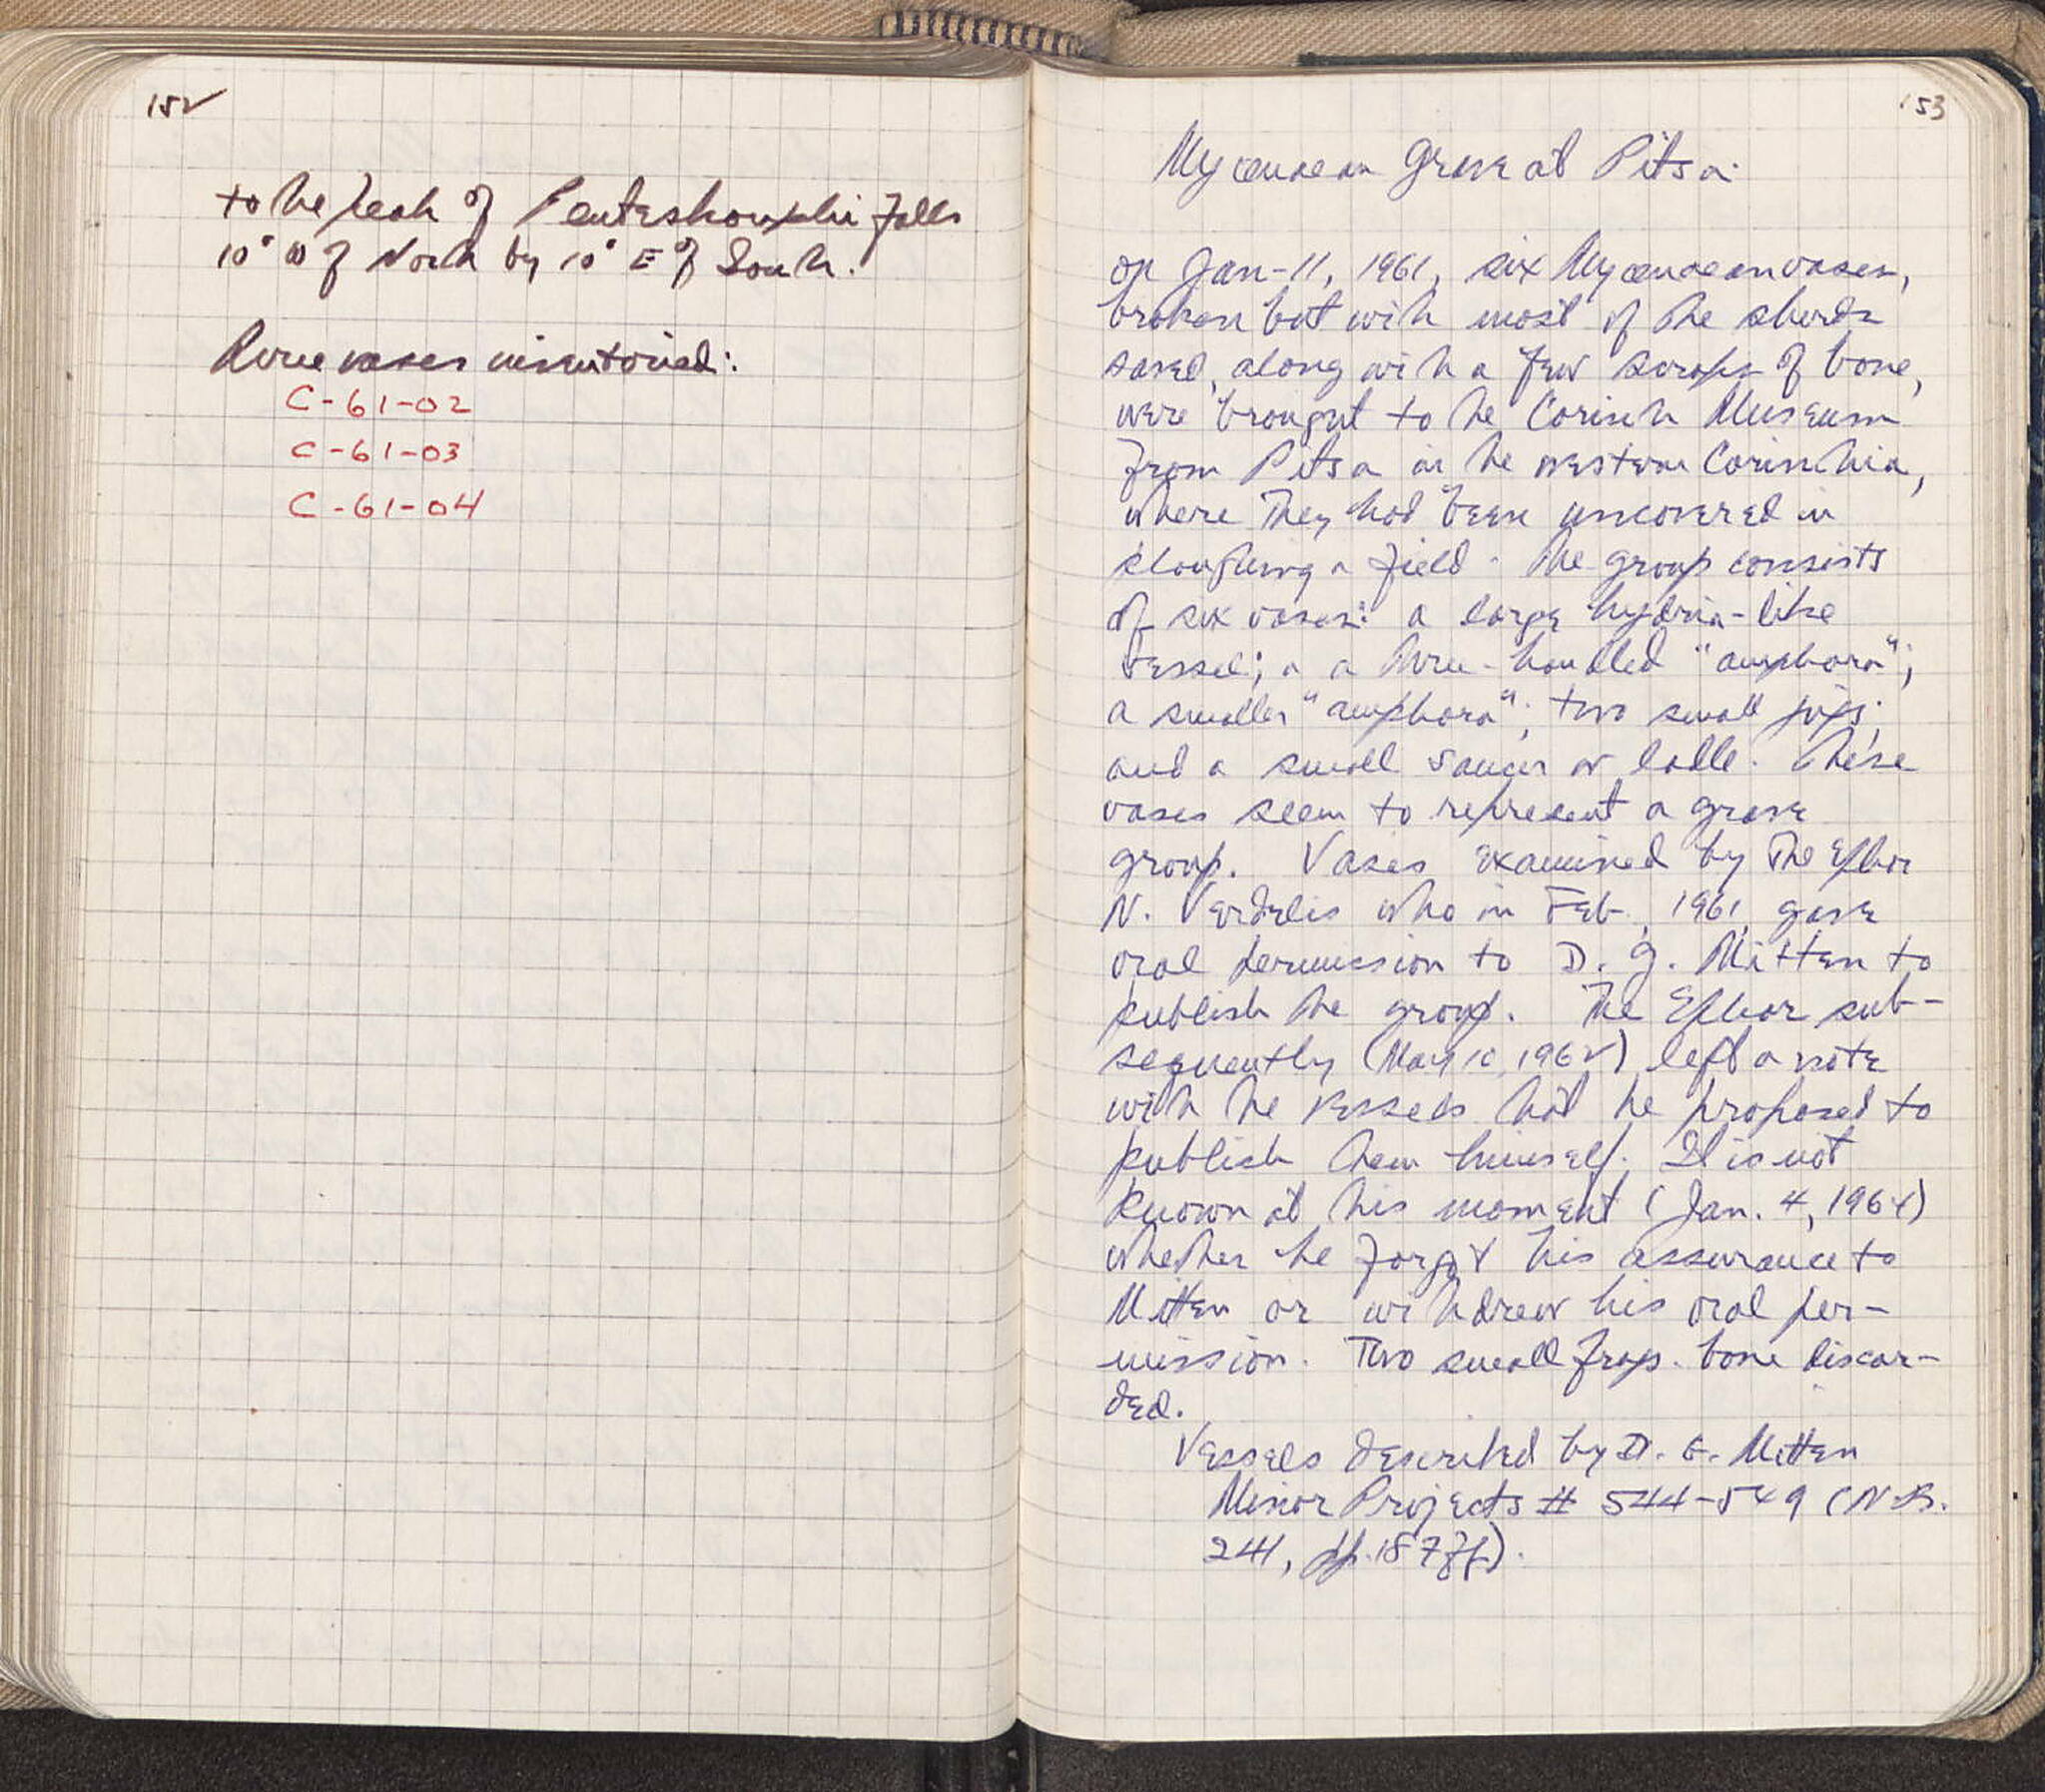 152
to the peak of Penteskouphi falls
10° W of North by 10° E of South.
Three vases inventoried:
C-61-02
C-61-03
C-61-04
153
Mycenaean Grave at Pitsa
On Jan-11, 1961, six Mycenaean vases,
broken but with most of the sherds
saved, along with a few scraps of bone,
were brought to the Corinth Museum
from Pitsa in the western Corinthia,
where they had been uncovered in
ploughing a field. The group consists
of six vases: a large hydria-like
vessel; a a three-handled "amphora";
a smaller "amphora"; two small jugs;
and a small saucer or ladle. These
vases seem to represent a grave
group. Vases examined by the Ephor
N. Verdelis who in Feb., 1961, gave
oral permission to D. G. Mitten to
publish the group. The Ephor sub-
sequently (May 10, 1962) left a note
with the vessels that he proposed to
publish them himself. It is not
known at this moment (Jan. 4, 1964)
whether he forgot his assurance to
Mitten or withdrew his oral per-
mission. Two small frags. bone discar-
ded.
Vessels described by D. G. Mitten
Minor Projects # 544-549 (N.B.
241, pp. 187 ff).